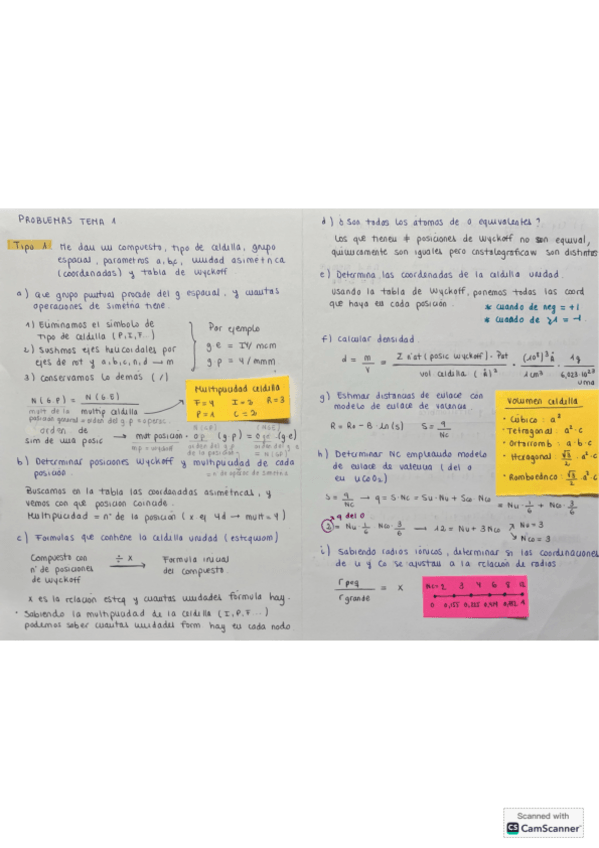 PROBLEMAS TEMA 1
Tipo 1 Me dan un compuesto, tipo de celdilla, grupo
espacial, parametros a, b, c, unidad asimetrica
(coordenadas) y tabla de wyckoff
a) que grupo puntual procede del g espacial, y cuantas
operaciones de simetria tiene.
1) Eliminamos el simbolo de
tipo de celdilla (P, I, F...)
2) Sustimos ejes helicoidales por
ejes de rot y a, b, c, n, d → m
3) Conservamos lo demás (/)
Por ejemplo
g e = I4/mcm
g p = 4/mmm
N(G.P) = N(G.E)
multip celdilla
Multiplicidad celdilla
F = 4 I = 2 R = 3
P = 1 C = 2
orden de
sim de una posic → mult posicion · o.p. (g p) = o g.e (g e)
b) Determinar posiciones Wyckoff y multiplicidad de cada
posicion.
Buscamos en la tabla las coordenadas asimetricas, y
vemos con que posicion coincide.
Multiplicidad = nº de la posicion (x ej 4d → mult = 4)
c) Formulas que contiene la celdilla unidad (estequiom)
Compuesto con
nº de posiciones
de wyckoff
÷ x →
Formula inicial
del compuesto.
x es la relacion esteq y cuantas unidades formula hay.
· Sabiendo la multiplicidad de la celdilla (I, P, F...)
podemos saber cuantas unidades form hay en cada nodo
d) ¿Son todos los atomos de O equivalentes?
Los que tienen ≠ posiciones de Wyckoff no son equival,
quimicamente son iguales pero cristalograficam son distintos
e) Determina las coordenadas de la celdilla unidad.
usando la tabla de Wyckoff, ponemos todas las coord
que haya en cada posicion.
* cuando de neg = +1
* cuando de ≥1 = -1.
f) calcular densidad.
g) Estimar distancias de enlace con
modelo de enlace de valencia.
R = Ro - B · ln(s) S = q/Nc
Volumen celdilla
· Cúbico: a³
· Tetragonal: a²·c
· Ortorromb: a·b·c
· Hexagonal: √3/2 · a²·c
h) Determinar NC empleando modelo
de enlace de valencia (del O
s = q/Nc → q = S·Nc = Su·Nu + Sco·Nco
q del O
= Nu · 1/6 + Nco · 3/6
2 = Nu · 1/6 Nco · 3/6 → 12 = Nu + 3Nco
Nu = 3
Nco = 3
i) Sabiendo radios ionicos, determinar si las coordinaciones
de U y Co se ajustan a la relacion de radios.
r peq / r grande = x